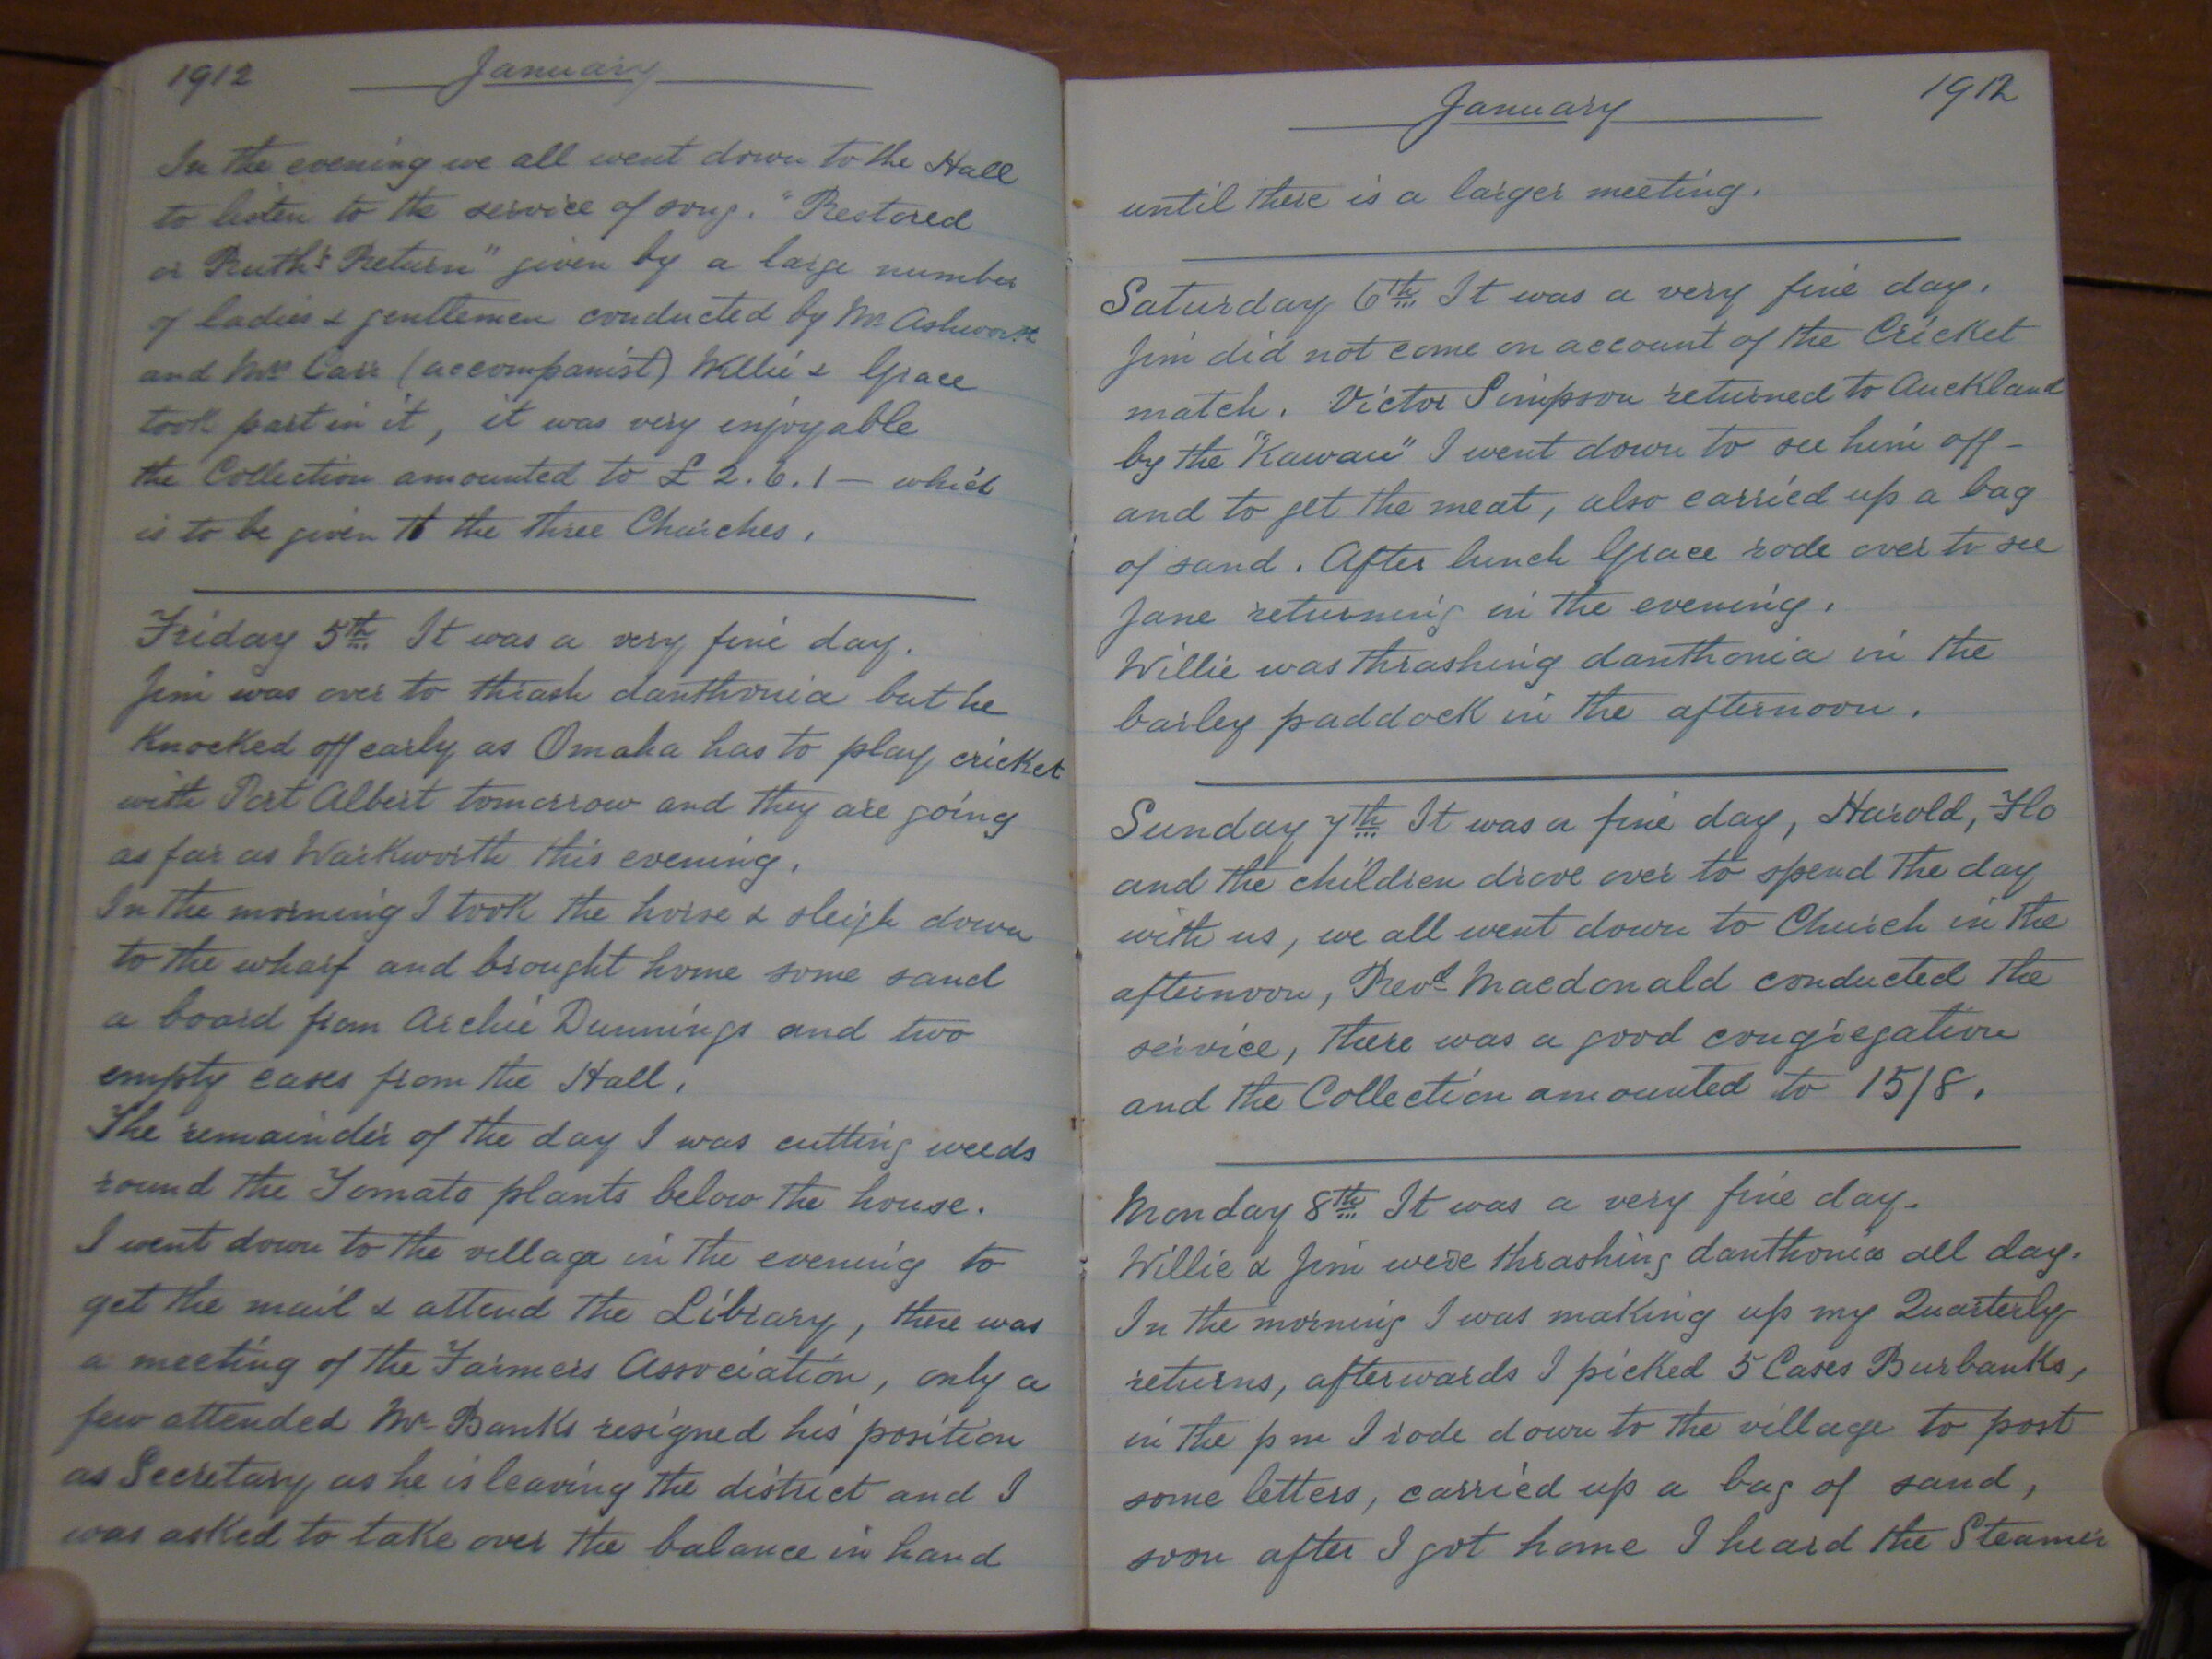 1912 January
In the evening we all went down to the Hall
to listen to the service of song. "Restored
or Ruth's Return" given by a large number
of ladies & gentlemen conducted by Mr Ashworth
and Mrs Carr (accompanist) Willie & Grace
took part in it, it was very enjoyable
the Collection amounted to £2.6.1 — which
is to be given to the three Churches.
Friday 5th It was a very fine day.
Jim was over to thrash danthonia but he
Knocked off early as Omaha has to play cricket
with Port Albert tomorrow and they are going
as far as Warkworth this evening.
In the morning I took the horse & sleigh down
to the wharf and brought home some sand
a board from Archie Dunnings and two
empty cases from the Hall.
The remainder of the day I was cutting weeds
round the Tomato plants below the house.
I went down to the village in the evening to
get the mail & attend the Library, there was
a meeting of the Farmers Association, only a
few attended Mr Banks resigned his position
as Secretary as he is leaving the district and I
was asked to take over the balance in hand
January 1912
until there is a larger meeting.
Saturday 6th It was a very fine day.
Jim did not come on account of the Cricket
match. Victor Simpson returned to Auckland
by the "Kawau" I went down to see him off -
and to get the meat, also carried up a bag
of sand. After lunch Grace rode over to see
Jane returning in the evening.
Willie was thrashing danthonia in the
barley paddock in the afternoon.
Sunday 7th It was a fine day, Harold, Flo
and the children drove over to spend the day
with us, we all went down to Church in the
afternoon, Revd Macdonald conducted the
service, there was a good congregation
and the Collection amounted to 15/8.
Monday 8th It was a very fine day.
Willie & Jim were thrashing danthonia all day.
In the morning I was making up my Quarterly
returns, afterwards I picked 5 Cases Burbanks,
in the pm I rode down to the village to post
some letters, carried up a bag of sand,
soon after I got home I heard the Steamer